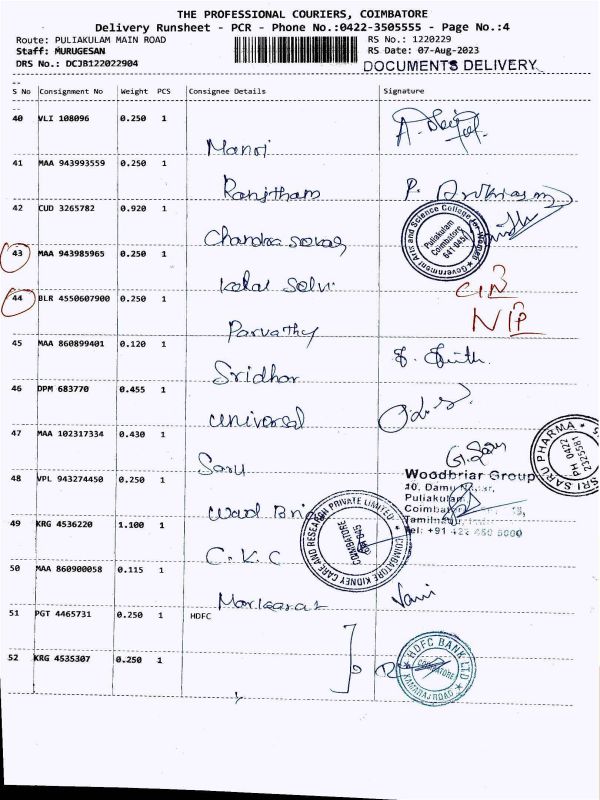 THE PROFESSIONAL COURIERS, COIMBATORE
Delivery Runsheet - PCR - Phone No.:0422-3505555 - Page No.:4
Route: PULIAKULAM MAIN ROAD RS No.: 1220229
Staff: MURUGESAN RS Date: 07-Aug-2023
DRS No.: DCJB122022904 DOCUMENTS DELIVERY
S No Consignment No Weight PCS Consignee Details Signature
40 VLI 108096 0.250 1
Manoj
41 MAA 943993559 0.250 1
Ranjitham P.
42 CUD 3265782 0.920 1
Chandra
Government Arts and Science College for Women
Puliakulam
Coimbatore
641 045
43 MAA 943985965 0.250 1
Kalai Selvi
44 BLR 4550607900 0.250 1
Parvathy NIP
45 MAA 860899401 0.120 1
Sridhar
46 DPM 683770 0.455 1
Universal
47 MAA 102317334 0.430 1
Saru G. Saru
SRI SARU PHARMA
PH 0422
2325581
48 VPL 943274450 0.250 1
Wood Bri
Woodbriar Group
Puliakulam
Coimbatore
Tamilnadu
49 KRG 4536220 1.100 1
C.K.C
COIMBATORE KIDNEY CARE AND RESEARCH PRIVATE LIMITED
COIMBATORE
50 MAA 860900058 0.115 1
Vani
51 PGT 4465731 0.250 1 HDFC
52 KRG 4535307 0.250 1
HDFC BANK LTD
COIMBATORE
KAMARAJ ROAD